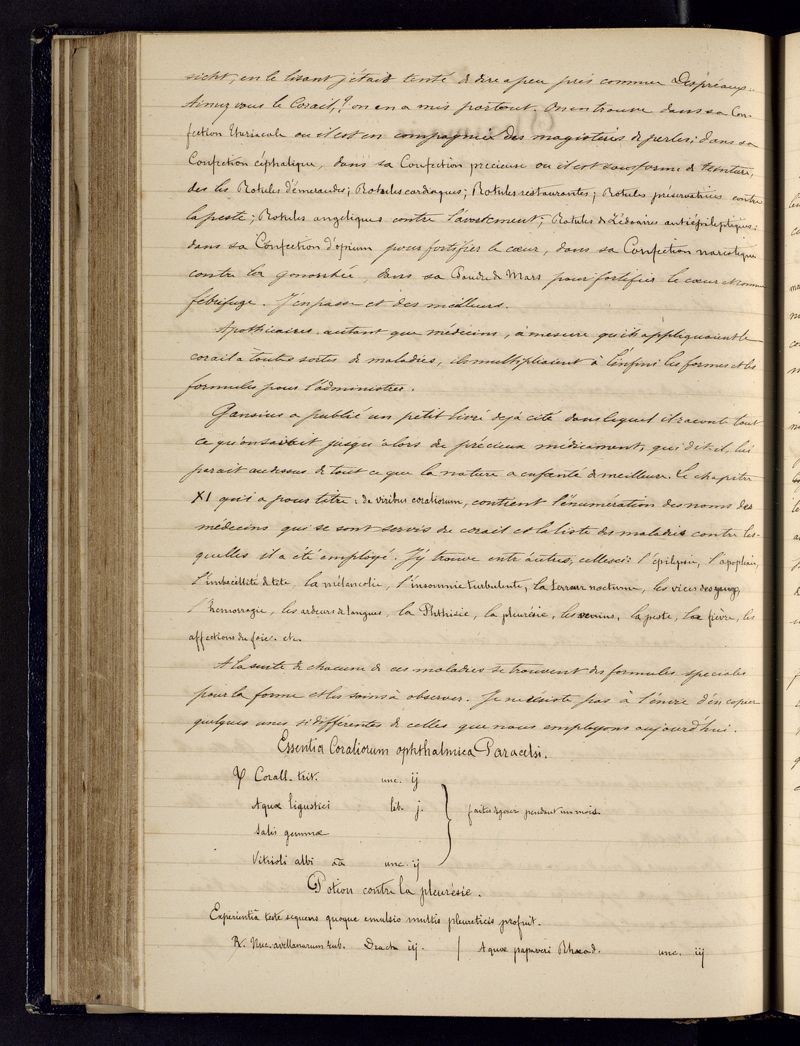 sicht, en le lisant j'étais tenté de dire a peu près comme Despréaux..
Aimez vous le Corail,? on en a mis partout. On en trouve dans sa Con-
fection theriacale ou il est en compagnie des magisteres de perles; dans sa
Confection céphalique, dans sa Confection précieuse ou il est sous forme de teinture,
des les Rotules d'émeraudes; Rotules cardiaques; Rotules restaurantes; Rotules préservatives contre
la peste; Rotules angeliques contre l'avortement; Rotules de Zédoaires antiépileptiques;
dans sa Confection d'opium pour fortifier le cœur, dans sa Confection narcotique
contre la gonorrhée, dans sa Poudre de Mars pour fortifier le cœur et comme
fébrifuge. J'en passe et des meilleurs.
Apothicaires autant que médecins, à mesure qu'ils appliquaient le
corail à toutes sortes de maladies, ils multipliaient à l'infini les formes et les
formules pour l'administrer.
Gansius a publié un petit livre dejà cité dans lequel il raconte tout
ce qu'on savait jusqu'alors du précieux médicament, qui dit-il, lui
parait au dessus de tout ce que la nature a enfanté de meilleur. Le chapitre
XI qui a pour titre: de viribus coraliorum, contient l'énumération des noms des
médecins qui se sont servis du corail et la liste des maladies contre les-
quelles il a été employé. J'y trouve entr'autres, celles ci: l'épilepsie, l'apoplexie,
l'imbécillité de tete, la mélancolie, l'insomnie turbulente, la terreur nocturne, les vices des yeux,
l'hemorragie, les ardeurs de langues, la Phthisie, la pleurésie, les venins, la peste, la fièvre, les
affections du foie. etc.
A la suite de chacune de ces maladies se trouvent des formules speciales
pour la forme et les soins à observer. Je ne résiste pas à l'envie d'en copier
quelques unes si différentes de celles que nous employons aujourd'hui.
Essentia Coraliorum ophthalmica Paracelsi.
℞ Corall. trit. unc. ij
Aquæ ligustici lib. j. faites digerer pendant un mois.
Salis gemmæ
Vitrioli albi āā unc. ij
Potion contre la pleurésie.
Experientiâ teste sequens quoque emulsio multis pleureticis profuit.
℞. Nuc. avellanarum rub. Drach iij. / Aquæ papaveri Rhœad. unc. iij